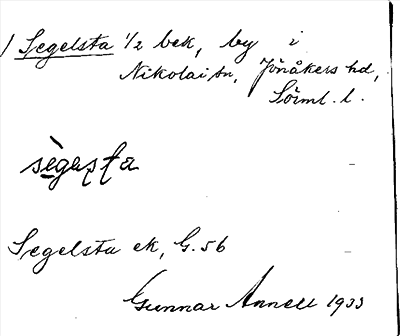 1 Segelsta 1/2 bek, by i
Nikolai sn, Jönåkers hd,
Sörml. l.
sègaṣṭa
Segelsta ek, G. 56
Gunnar Annell 1933